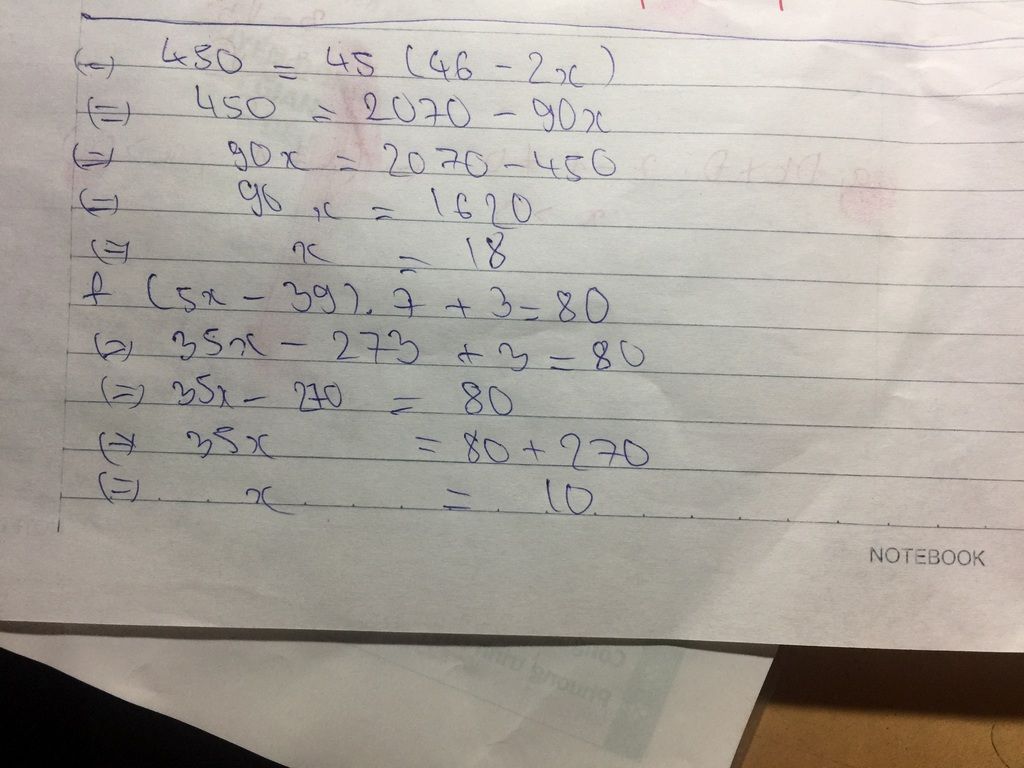 (=) 450 = 45 (46 - 2x)
(=) 450 = 2070 - 90x
(=) 90x = 2070 - 450
(=) 90 x = 1620
(=) x = 18
f (5x - 39). 7 + 3 = 80
(=) 35x - 273 + 3 = 80
(=) 35x - 270 = 80
(=) 35x = 80 + 270
(=) x = 10
NOTEBOOK